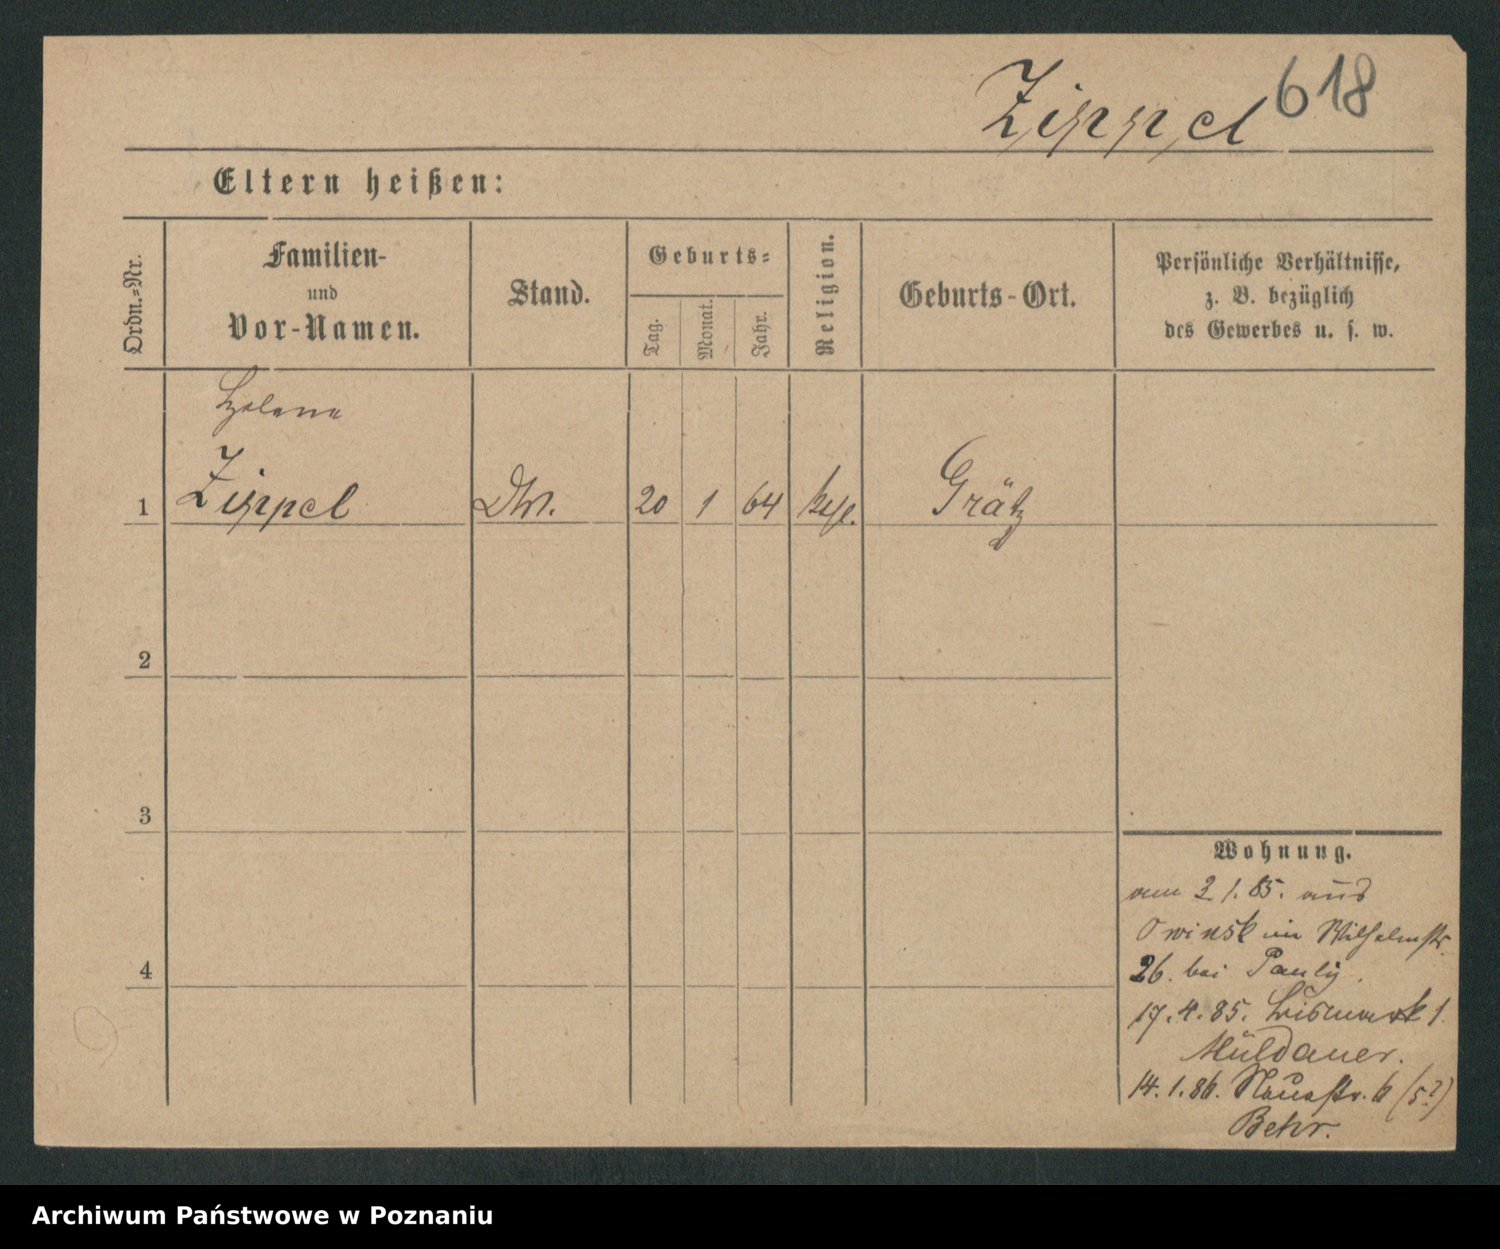 Zippel 618
Eltern heißen:
Ordn.-Nr.
Familien-
und
Vor-Namen.
Stand.
Geburts-
Tag.
Monat.
Jahr.
Religion.
Geburts-Ort.
Persönliche Verhältnisse,
z. B. bezüglich
des Gewerbes u. s. w.
Helene
1 Zippel 20 1 64 Grätz
2
3
4
Wohnung.
am 2 1. 85. aus
Owinsk in Wilhelmstr.
26. bei Pauly.
17. 4. 85. Bismark 1.
Müldauer.
14. 1. 86. Neuestr. 6 (5?)
Behr.
Archiwum Państwowe w Poznaniu